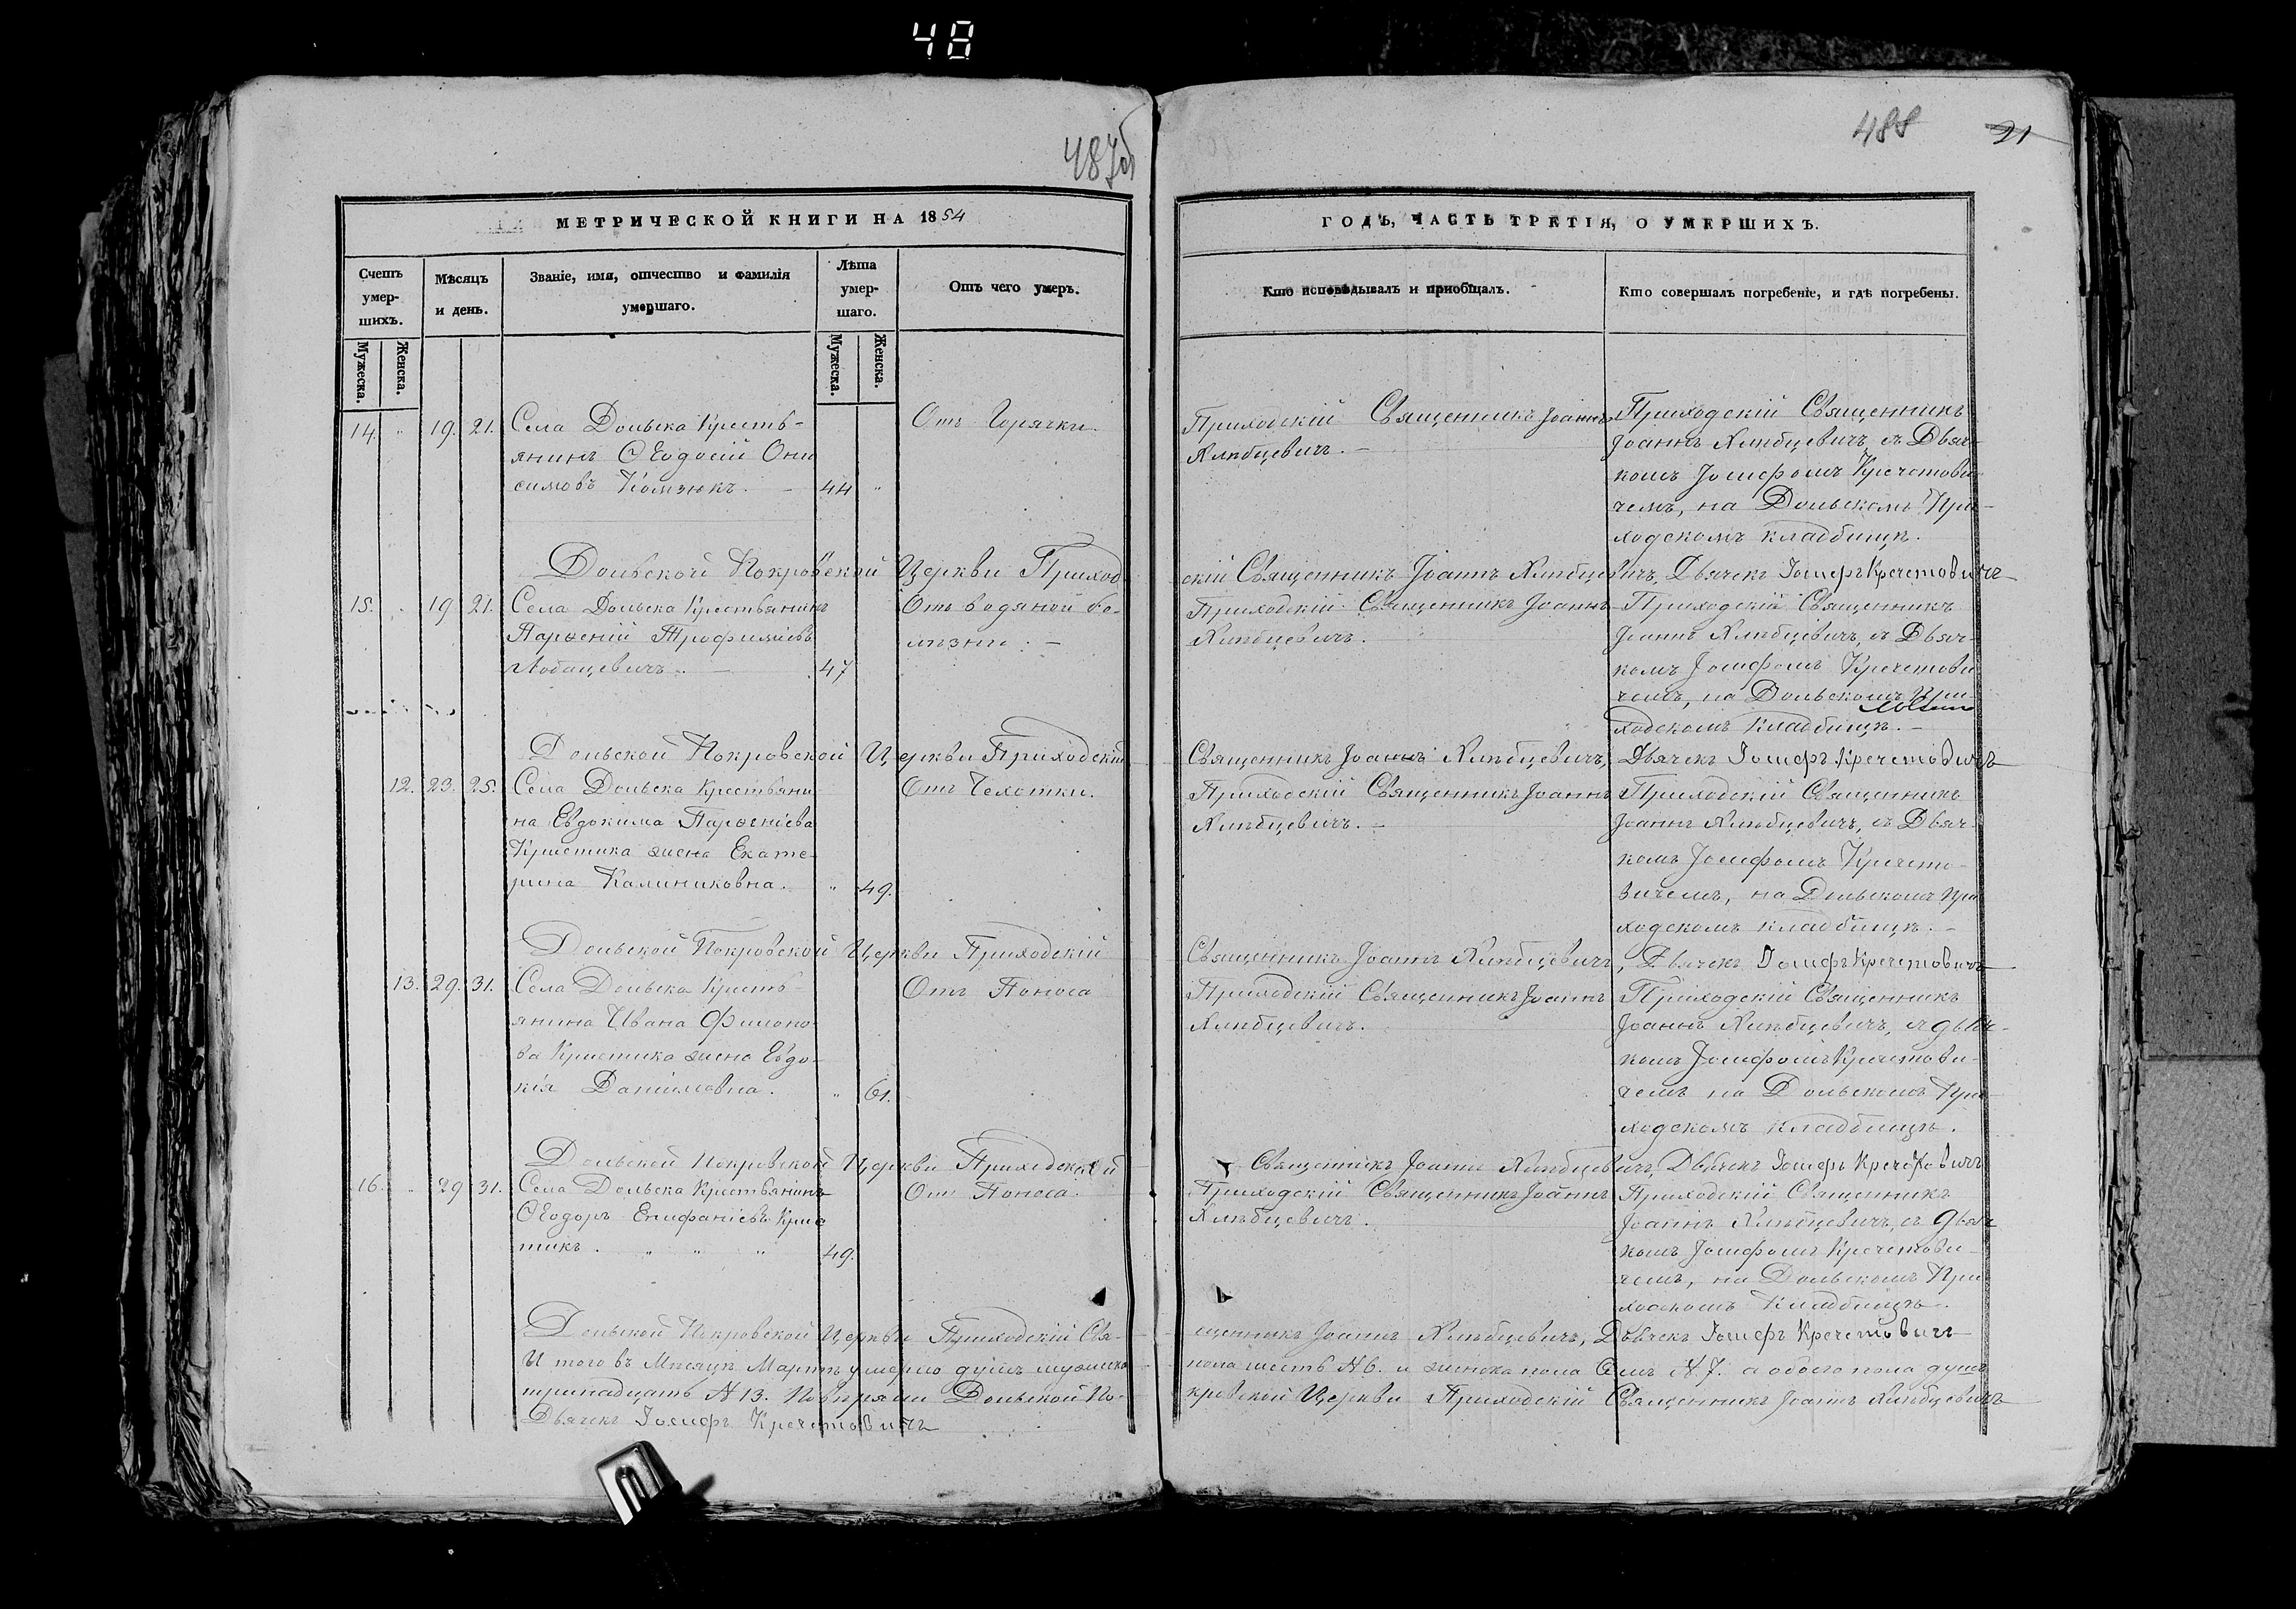 48
487об
488 21
МЕТРИЧЕСКОЙ КНИГИ НА 1854
ГОДЪ, ЧАСТЬ ТРЕТІЯ, О УМЕРШИХЪ.
Счетъ умер-шихъ.
Мѣсяцъ и день.
Званіе, имя, отчество и фамилія
умершаго.
Лѣта умер-шаго.
Отъ чего умеръ.
Кто исповѣдывалъ и пріобщалъ.
Кто совершалъ погребеніе, и гдѣ погребены.
Мужеска. Женска.
Мужеска. Женска.
14. " 19. 21. Села Дольска Кресть-
янинъ Ѳеодосій Они
симовъ Комзюкъ. - 44 "
Отъ Горячки.
Приходскій Священникъ Іоаннъ
Хлѣбцевичъ. -
Приходскій Священникъ
Іоаннъ Хлѣбцевичъ, съ Дьяч-
комъ Іосифомъ Кречетови
чемъ, на Дольскомъ При-
ходскомъ кладбищѣ.
Дольской Покровской Церкви Приход
скій Священникъ Іоаннъ Хлѣбцевичъ, Дьячекъ Іосифъ Кречетовичъ
15. . 19 21. Села Дольска Крестьянинъ
Парѳеній Трофимовъ
Лобацевичъ. - 47
Отъ водяной бо-
лѣзни. -
Приходскій Священникъ Іоаннъ
Хлѣбцевичъ.
Приходскій Священникъ
Іоаннъ Хлѣбцевичъ, съ Дьяч-
комъ Іосифомъ Кречетови
чемъ, на Дольскомъ При-
ходскомъ кладбищѣ. -
Дольской Покровской Церкви Приходскій
Священникъ Іоаннъ Хлѣбцевичъ, Дьячекъ Іосифъ Кречетовичъ
12. 23. 25. Села Дольска Крестьяни
на Евдокима Парѳеніева
Кристика жена Екате-
рина Калиниковна. " 49.
Отъ Чехотки.
Приходскій Священникъ Іоаннъ
Хлѣбцевичъ. -
Приходскій Священникъ
Іоаннъ Хлѣбцевичъ, съ Дьяч-
комъ Іосифомъ Кречето-
вичемъ, на Дольскомъ При
ходскомъ кладбищѣ. -
Дольской Покровской Церкви Приходскій
Священникъ Іоаннъ Хлѣбцевичъ, Дьячекъ Іосифъ Кречетовичъ
13. 29. 31. Села Дольска Кресть-
янина Ивана Филоно-
ва Кристика жена Евдо-
кія Даниловна. " 61.
Отъ Поноса
Приходскій Священникъ Іоаннъ
Хлѣбцевичъ.
Приходскій Священникъ
Іоаннъ Хлѣбцевичъ, съ дьяч-
комъ Іосифомъ Кречетови-
чемъ на Дольскомъ При-
ходскомъ кладбищѣ.
Дольской Покровской Церкви Приходскій
Священникъ Іоаннъ Хлѣбцевичъ, Дьячекъ Іосифъ Кречетовичъ
16. . 29 31. Села Дольска Крестьянинъ
Ѳеодоръ Епифаніевъ Крис
тикъ. " " " 49.
Отъ Поноса.
Приходскій Священникъ Іоаннъ
Хлѣбцевичъ.
Приходскій Священникъ
Іоаннъ Хлѣбцевичъ, съ дьяч
комъ Іосифомъ Кречетови-
чемъ, на Дольскомъ При
ходскомъ Кладбищѣ.
Дольской Покровской Церкви Приходскій Свя-
щенникъ Іоаннъ Хлѣбцевичъ, Дьячекъ Іосифъ Кречетовичъ
И того въ Мѣсяцѣ Мартѣ умерло душъ мужеска
пола шесть № 6. и женска пола семь № 7. а обоего пола душъ
тринадцать № 13. Дольской По-
кровской Церкви Приходскій Священникъ Іоаннъ Хлѣбцевичъ
Дьячекъ Іосифъ Кречетовичъ